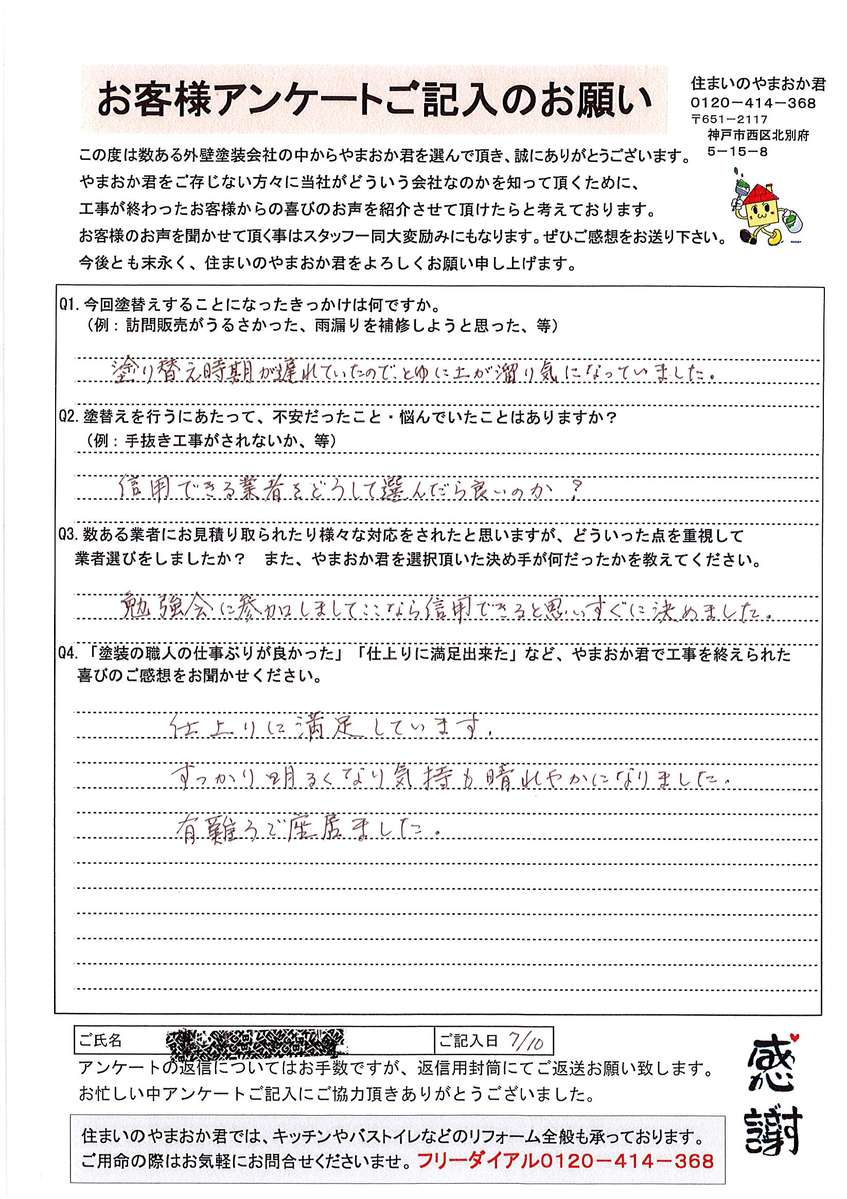 お客様アンケートご記入のお願い
住まいのやまおか君
0120-414-368
〒651-2117
神戸市西区北別府
5-15-8
この度は数ある外壁塗装会社の中からやまおか君を選んで頂き、誠にありがとうございます。
やまおか君をご存じない方々に当社がどういう会社なのかを知って頂くために、
工事が終わったお客様からの喜びのお声を紹介させて頂けたらと考えております。
お客様のお声を聞かせて頂く事はスタッフ一同大変励みにもなります。ぜひご感想をお送り下さい。
今後とも末永く、住まいのやまおか君をよろしくお願い申し上げます。
Q1. 今回塗替えすることになったきっかけは何ですか。
(例：訪問販売がうるさかった、雨漏りを補修しようと思った、等)
塗り替え時期が遅れていたのでとゆに土が溜り気になっていました。
Q2. 塗替えを行うにあたって、不安だったこと・悩んでいたことはありますか？
(例：手抜き工事がされないか、等)
信用できる業者をどうして選んだら良いのか？
Q3. 数ある業者にお見積り取られたり様々な対応をされたと思いますが、どういった点を重視して
業者選びをしましたか？ また、やまおか君を選択頂いた決め手が何だったかを教えてください。
勉強会に参加しましてここなら信用できると思いすぐに決めました。
Q4. 「塗装の職人の仕事ぶりが良かった」「仕上りに満足出来た」など、やまおか君で工事を終えられた
喜びのご感想をお聞かせください。
仕上りに満足しています。
すっかり明るくなり気持も晴れやかになりました。
有難うで座居ました。
ご氏名
ご記入日 7/10
アンケートの返信についてはお手数ですが、返信用封筒にてご返送お願い致します。
お忙しい中アンケートご記入にご協力頂きありがとうございました。
感謝
住まいのやまおか君では、キッチンやバストイレなどのリフォーム全般も承っております。
ご用命の際はお気軽にお問合せくださいませ。フリーダイアル0120-414-368